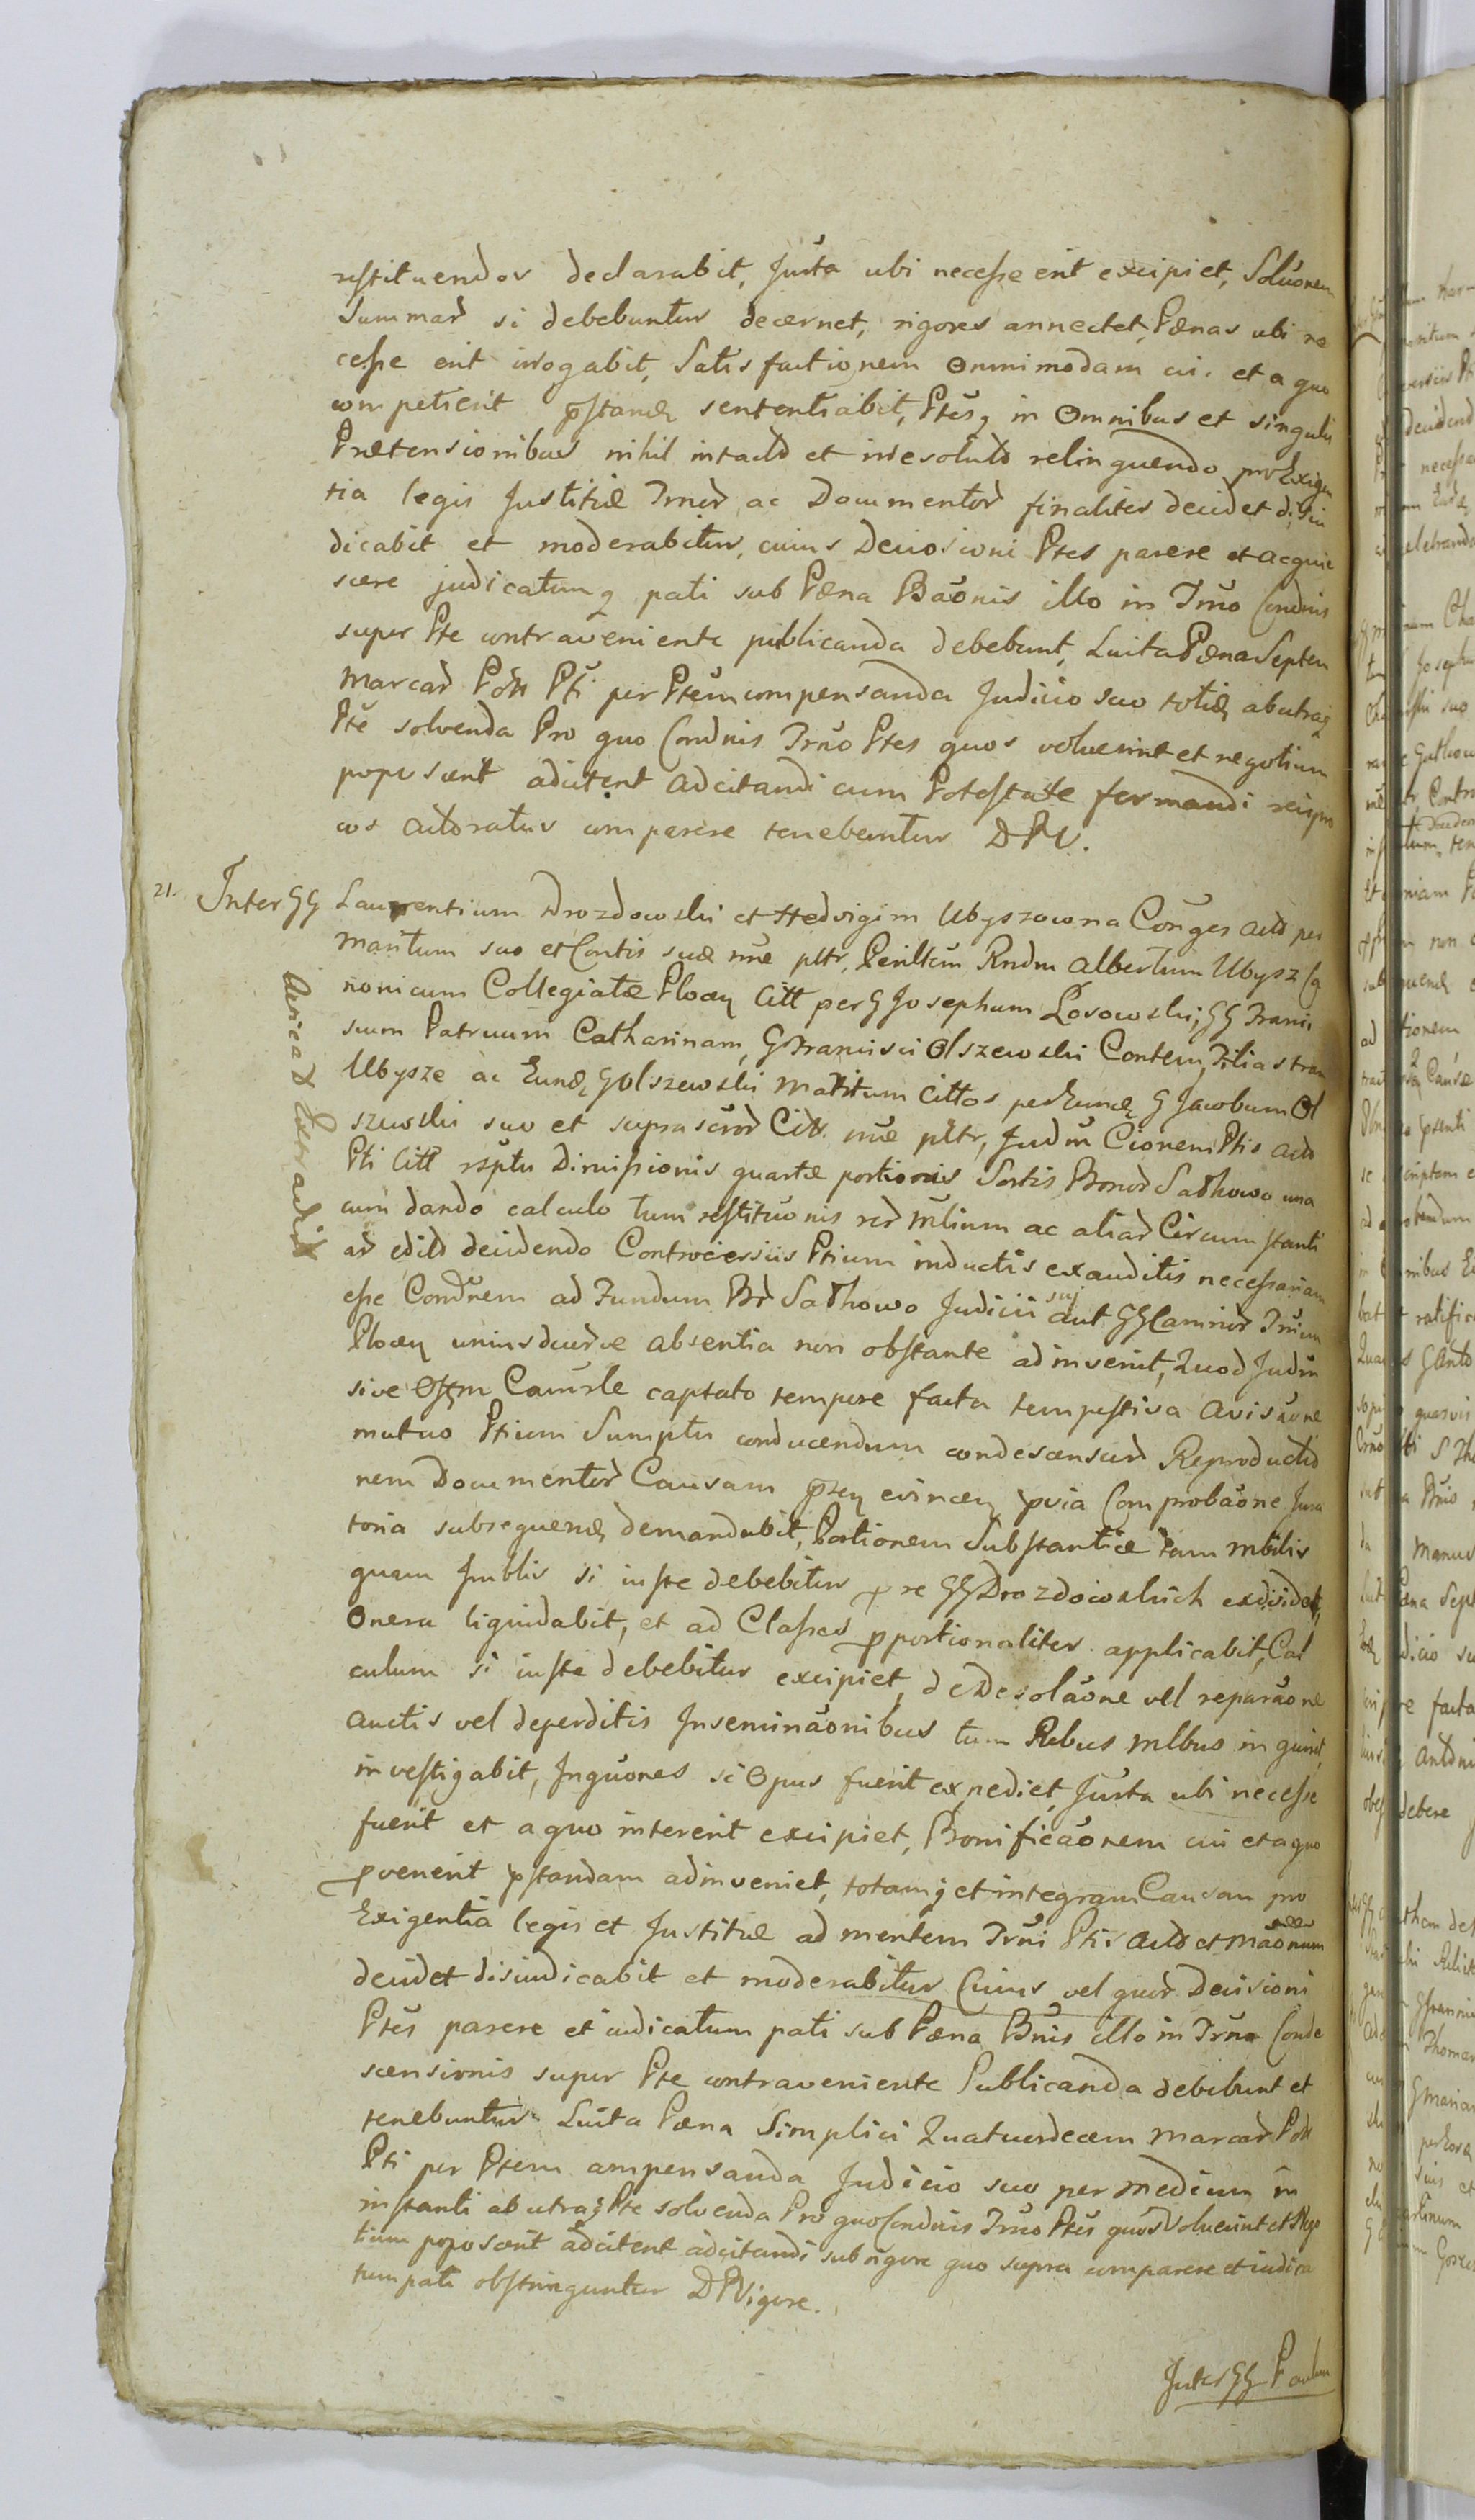 restituendos declarabit, Jurta ubi necesse erit excipiet, Soluonem
Summar si debebuntur decernet, rigores annectet, Pænas ubi ne
cesse erit irrogabit, Satisfactionem Omnimodam cui et a quo
competierit pstandæ sententiabit, Ptesq in Omnibus et singulis
Prætensionibus nihil intacto et irresoluto relinquendo pro Exigen
tia legis Justitiæ Trnor ac Documentor finaliter decidet disiu
dicabit et moderabitur, cuius Decisioni Ptes parere et acquie
scere judicatumq pati sub Pæna Baonis illo in Trno Condnis
super Pte contraveniente publicanda debebunt, Luita Pæna Septem
Marcar Poll Pti per Ptem compensanda Judicio suo toties ab utraq
Pte solvenda Pro quo Condnis Trno Ptes quos voluerint et negotium
poposcerit adcitent adcitandi cum Potestate formandi recipro
cos actoratus comparere tenebuntur DPV.
21. Inter GG Laurentium Drozdowski et Hedvigim Ubyszowna Conges acto per
maritum suo et Contis suæ nne pltr, Perillem Rndm Albertum Ubysz Ca
nonicum Collegiatæ Plocen Citt per G Josephum Losowski, GG Franci
scum Patruum Catharinam, G Francisci Olszewski Contem, Filias tran
Ubysze ac Eund G Olszewski Maritum Cittos per Eund G Jacobum Ol
szewski suo et suprascror Citt nne pltr, Judm Cionem Ptis acto
Pti Citt rsptu Dimissionis quartæ portionis Sortis Bonor Sathowo una
cum dando calculo tum restituonis rer mlium ac aliar Circumstanti
ar edito decidendo Controversiis Ptium inductis exauditis necessariam
esse Condnem ad Fundum Br Sathowo Judicii sui aut GG Camrior Trium
Plocen unius duorve absentia non obstante adinvenit, Quod Judm
sive Offm Camrle captato tempore facta tempestiva avisaone
mutuo Ptium Sumptu conducendum condescensur Reproductio
nem Documentor Causam psen evincen pvia Comprobaone Jura
toria subsequend demandabit, Portionem Substantiæ tam mbilis
quam Jmblis si iuste debebitur p re GG Drozdowskich exdividet,
Onera liquidabit, et ad Classes pportionaliter applicabit, Cal
culum si iuste debebitur excipiet, de Desolaone vel reparaone
auctis vel deperditis Inseminaonibus tum Rebus mlbus inquiret
investigabit, Inquones si Opus fuerit expediet Jurta ubi necesse
fuerit et a quo intererit excipiet, Bonificaonem cui et a quo
pvenerit pstandam adinveniet, totamq et integram Causam pro
Exigentia legis et Justitiæ ad mentem Trni Ptis acto et
decidet disiudicabit et moderabitur Cuius vel quor Decisioni
Ptes parere et iudicatum pati sub Pæna Bnis illo in Trno Conde
scensionis super Pte contraveniente Publicanda debebunt et
tenebuntur Luita Pæna Simplici Quatuordecem Marcar Poll
Pti per Ptem compensanda Judicio suo per medium in
instanti ab utraq Pte solvenda Pro quo Condnis Trno Ptes quos voluerint et Nego
tium poposcerit adcitent adcitandi sub rigore quo supra comparere et iudica
tum pati obstringuntur DPVigore.
Inter GG Paulum